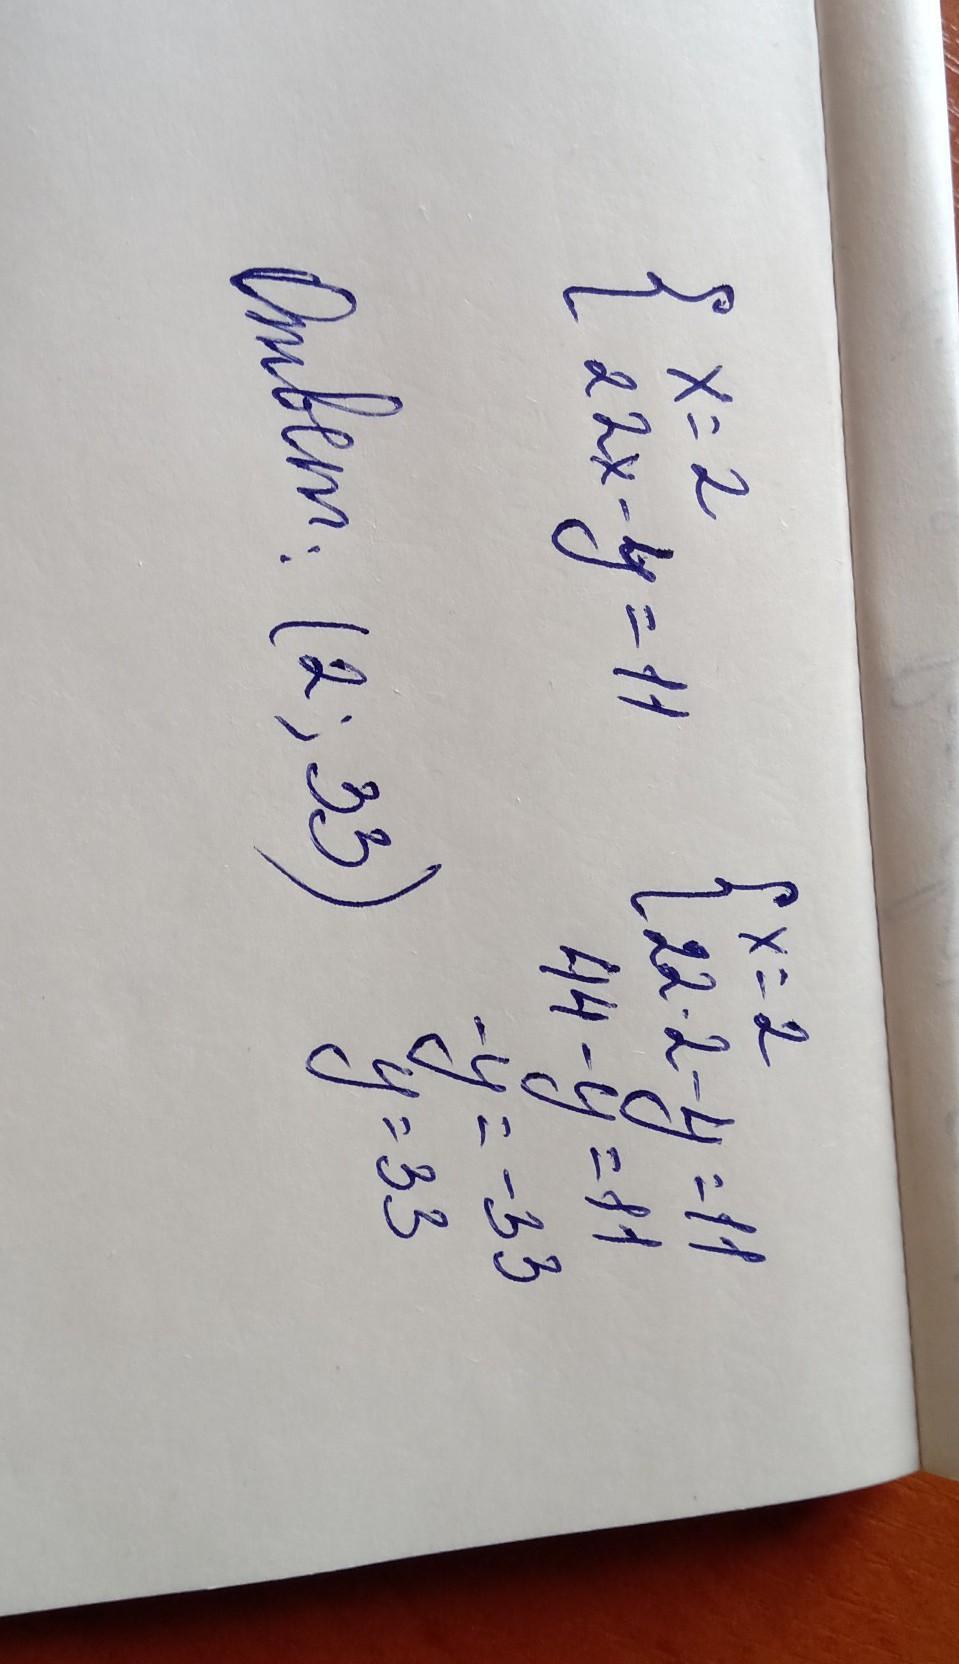 { x = 2
22x - y = 11
{ x = 2
22·2 - y = 11
44 - y = 11
-y = -33
y = 33
Ответ: (2; 33)